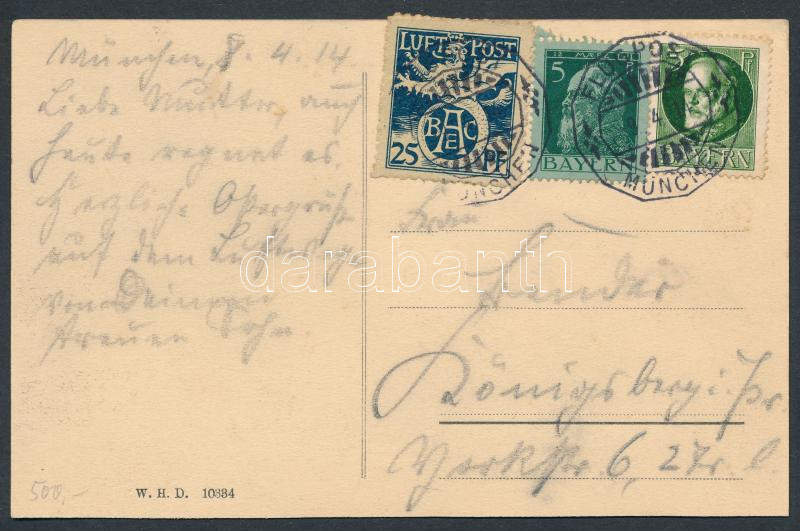 München, 8. 4. 14
Liebe Mutter, auch
heute regnet es.
Herzliche Ostergrüße
auf dem Luftwege
von Deinem
treuen Sohn.
LUFT POST
BAEC
25 PF
5
BAYERN
5 PF
BAYERN
FLUGPOST
MÜNCHEN
MÜNCHEN
Frau
Königsberg i. Pr.
Yorkstr 6, 27r l.
darabanth
500,-
W. H. D. 10884